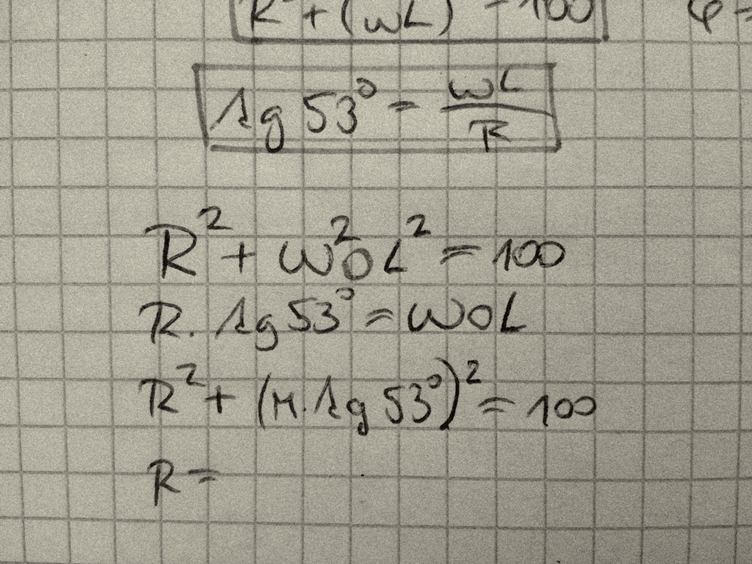 R² + (ωL)² = 100 φ =
tg 53° = ωL/R
R² + ω²₀L² = 100
R. tg 53° = ω₀L
R² + (R. tg 53°)² = 100
R =